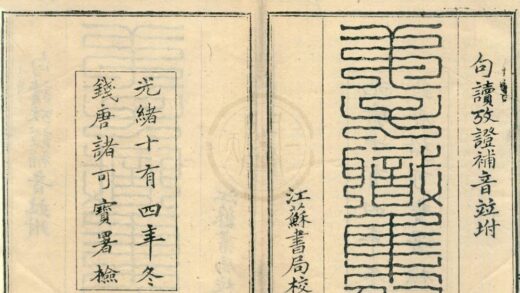 句讀攷證補音竝坿
弟子職集
江蘇書局校
光緒十有四年冬
錢唐諸可寶署檢